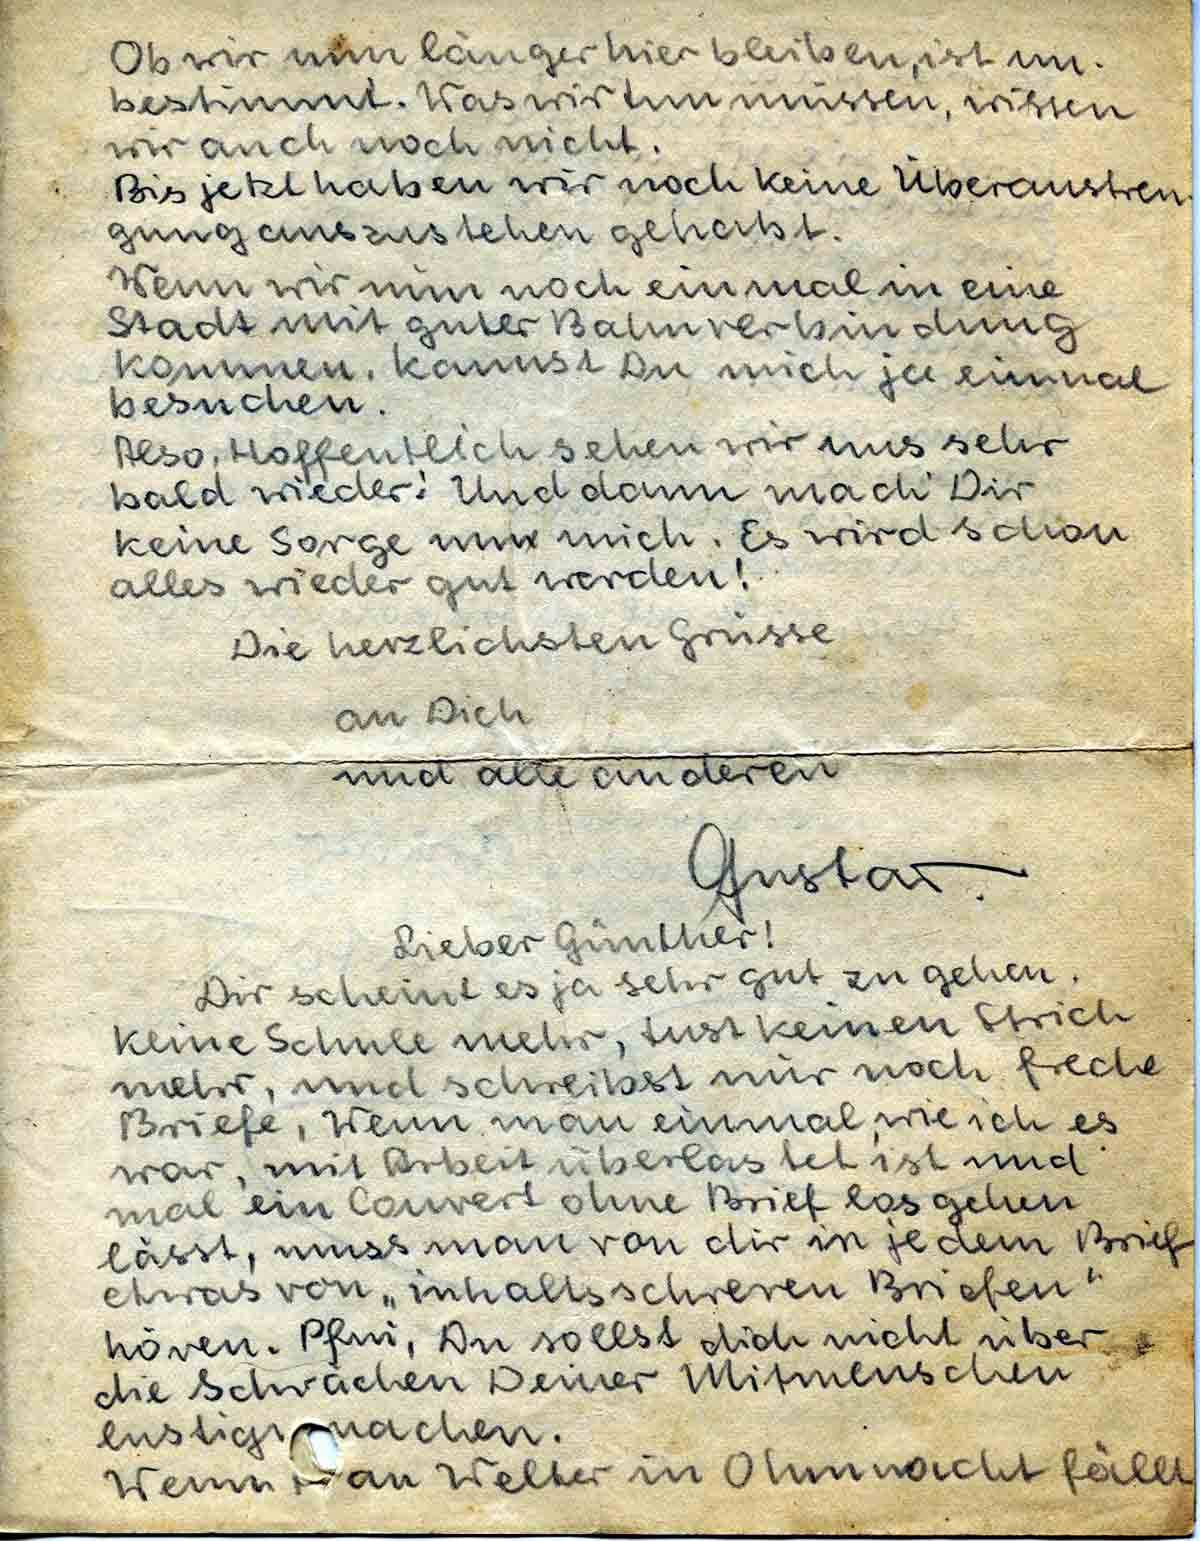 Ob wir nun länger hier bleiben, ist un-
bestimmt. Was wir tun müssen, wissen
wir auch noch nicht.
Bis jetzt haben wir noch keine Überanstren-
gung auszustehen gehabt.
Wenn wir nun noch einmal in eine
Stadt mit guter Bahnverbindung
kommen, kannst Du mich ja einmal
besuchen.
Also, Hoffentlich sehen wir uns sehr
bald wieder! Und dann mach' Dir
keine Sorge um mich. Es wird schon
alles wieder gut werden!
Die herzlichsten Grüsse
an Dich
und alle anderen
Gustav.
Lieber Günther!
Dir scheint es ja sehr gut zu gehen.
Keine Schule mehr, tust keinen Strich
mehr, und schreibst nur noch freche
Briefe, Wenn man einmal, wie ich es
war, mit Arbeit überlastet ist und
mal ein Couvert ohne Brief losgehen
lässt, muss man von dir in jedem Brief
etwas von „inhaltsschweren Briefen“
hören. Pfui, Du sollst dich nicht über
die Schwächen Deiner Mitmenschen
lustig machen.
Wenn Welter in Ohnmacht fällt